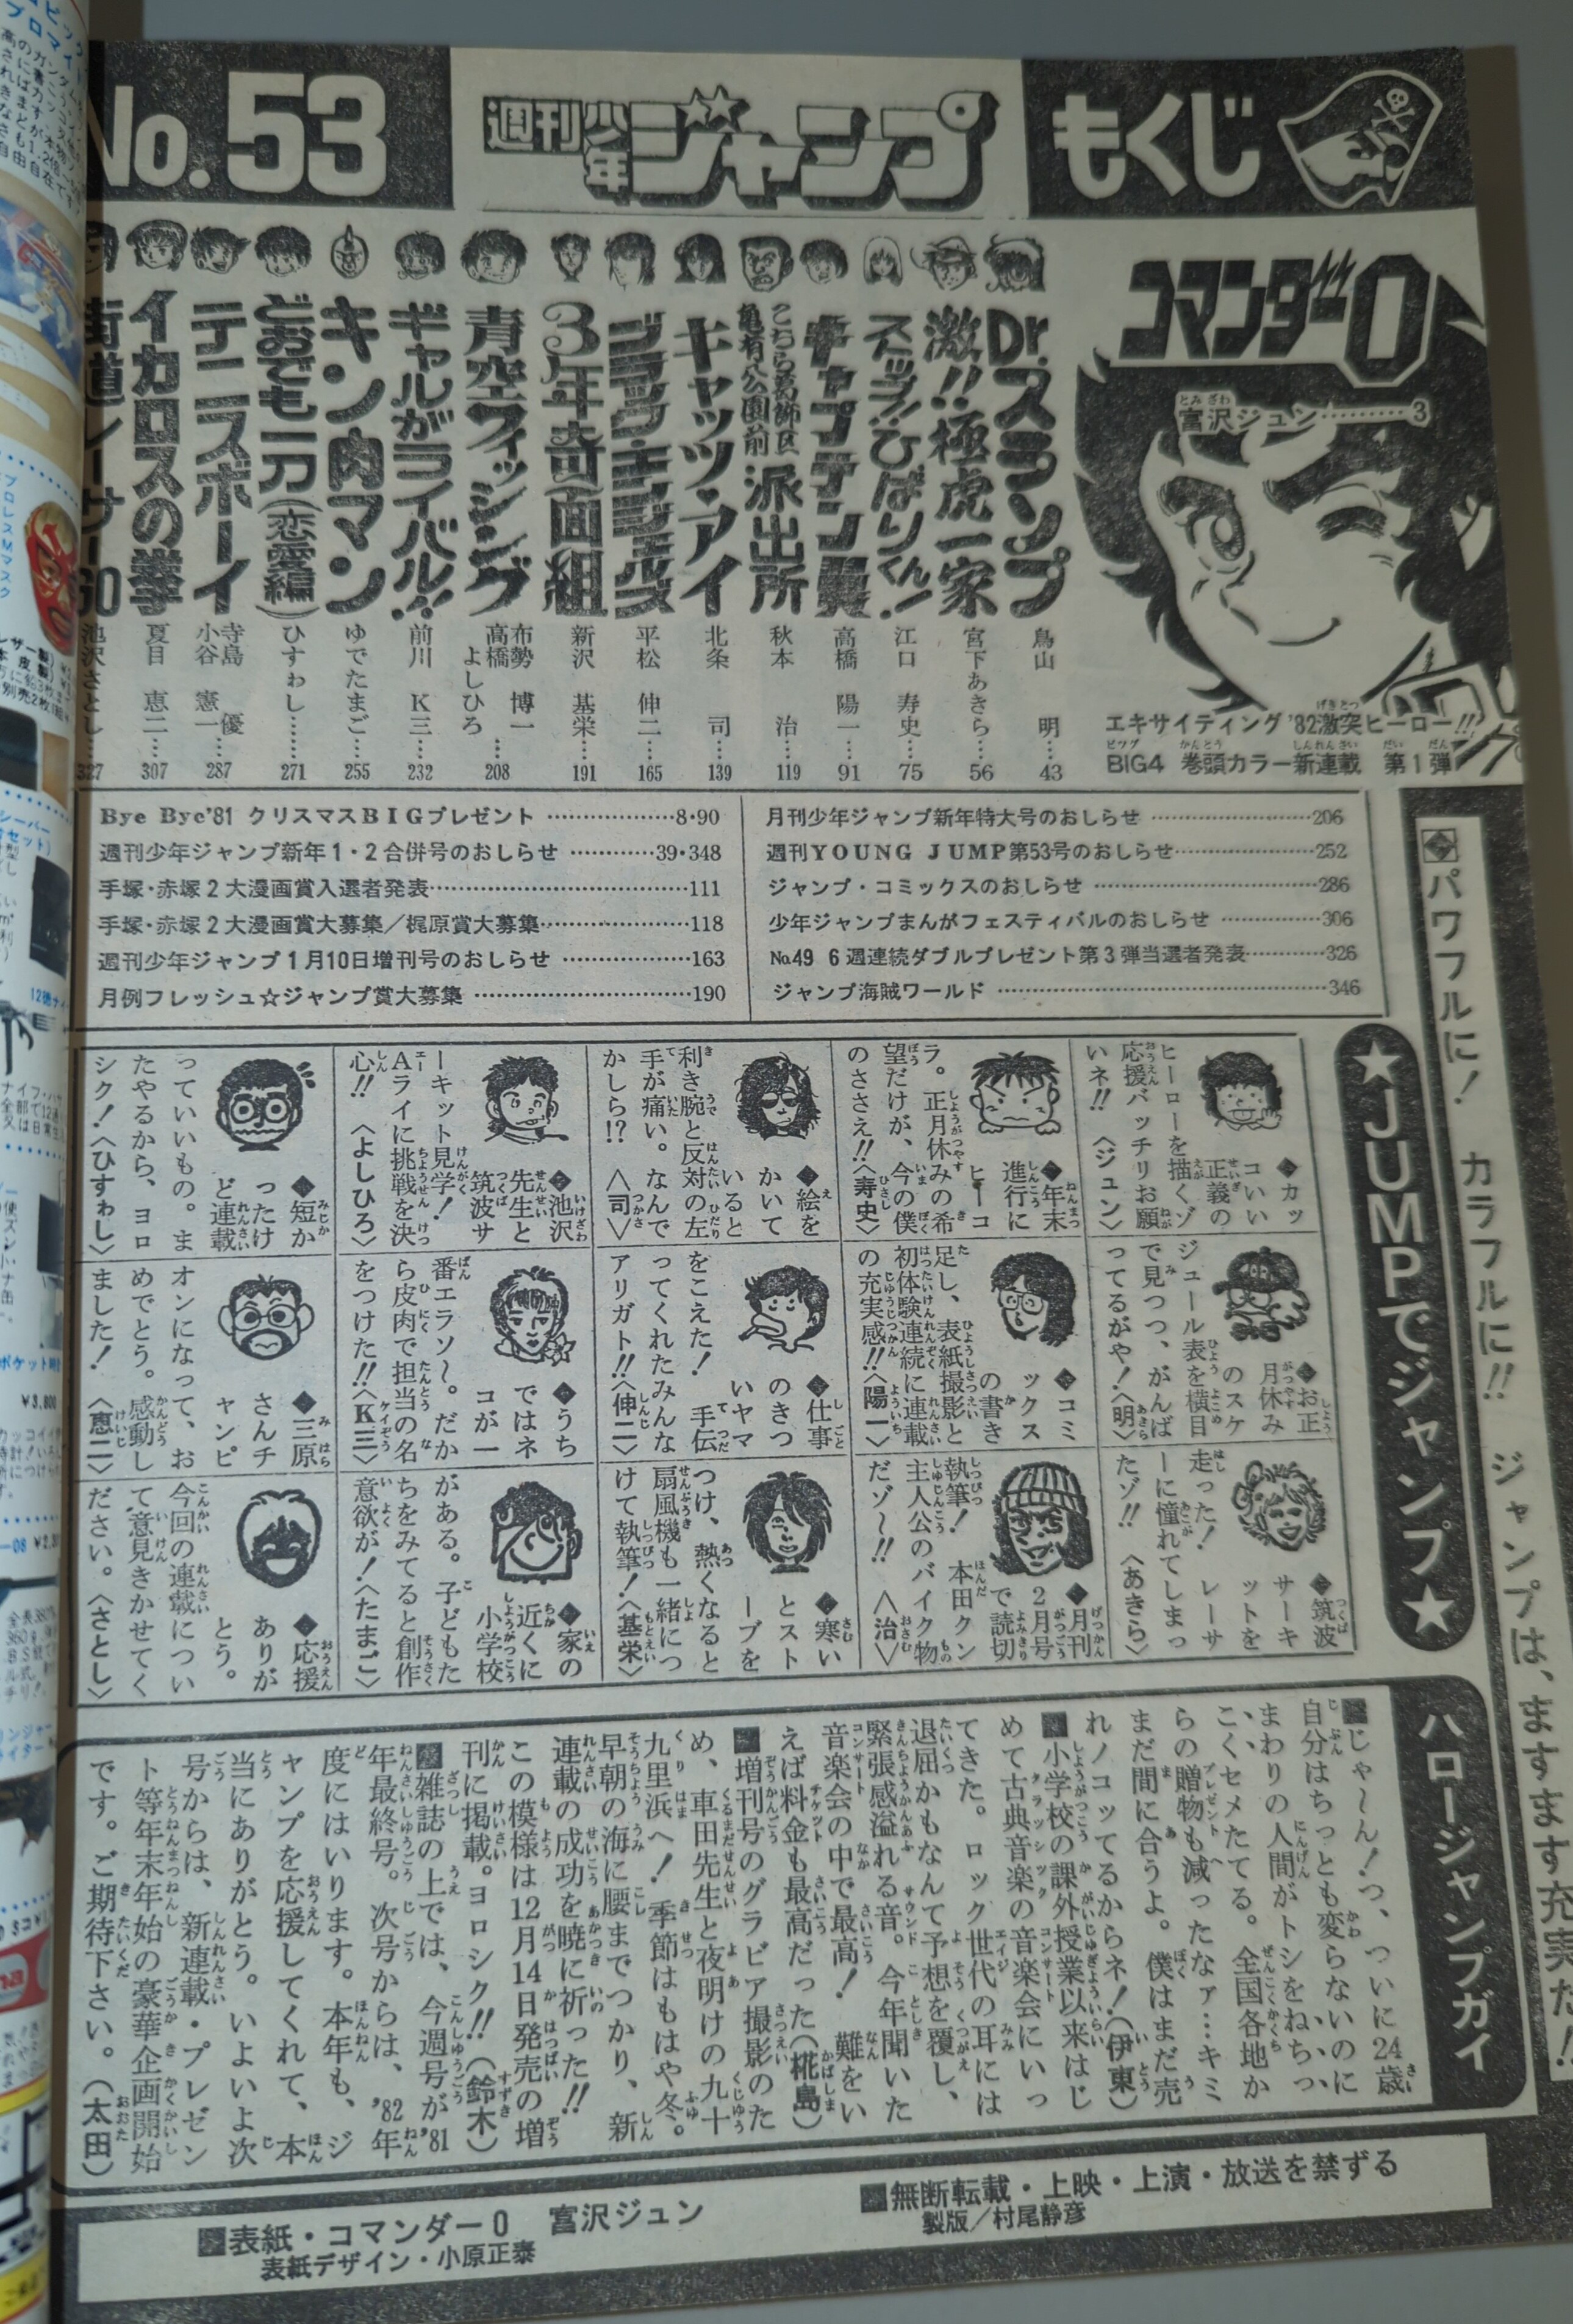 もくじ
週刊少年ジャンプ
No.53
コマンダー0
富沢ジュン………3
エキサイティング'82激突ヒーロー!!
BIG4 巻頭カラー新連載 第1弾
Dr.スランプ 鳥山 明…43
激!!極虎一家 宮下あきら…56
ストップ!!ひばりくん! 江口 寿史…75
キャプテン翼 高橋 陽一…91
こちら葛飾区亀有公園前派出所 秋本 治…119
キャッツ・アイ 北条 司…139
ブラック・エンジェルズ 平松 伸二…165
3年奇面組 新沢 基栄…191
青空フィッシング 布勢 博一 高橋 よしひろ…208
ギャルがライバル!! 前川 K三…232
キン肉マン ゆでたまご…255
どおでも一刀(恋愛編) ひすわし……271
テニスボーイ 寺島 優 小谷 憲一…287
イカロスの拳 夏目 恵二…307
池沢さとし…327
月刊少年ジャンプ新年特大号のおしらせ……206
週刊YOUNG JUMP第53号のおしらせ……252
ジャンプ・コミックスのおしらせ……286
少年ジャンプまんがフェスティバルのおしらせ……306
No.49 6週連続ダブルプレゼント第3弾当選者発表……326
ジャンプ海賊ワールド……346
Bye Bye'81 クリスマスBIGプレゼント……8・90
週刊少年ジャンプ新年1・2合併号のおしらせ……39・348
手塚・赤塚2大漫画賞入選者発表……111
手塚・赤塚2大漫画賞大募集/梶原賞大募集……118
週刊少年ジャンプ1月10日増刊号のおしらせ……163
月例フレッシュ☆ジャンプ賞大募集……190
パワフルに! カラフルに!! ジャンプは、ますます充実だ!!
★JUMPでジャンプ★
◆カッコいい正義のヒーローを描くゾ 応援バッチリお願いネ!! 〈ジュン〉
◆お正月休みのスケジュール表を横目で見つつ、がんばってるがや!〈明〉
◆筑波サーキットを走った! レーサーに憧れてしまったゾ!! 〈あきら〉
◆年末進行にヒーコラ。正月休みの希望だけが、今の僕のささえ!!〈寿史〉
◆コミックスの書き足し、表紙撮影と初体験連続に連載の充実感!!〈陽一〉
◆月刊2月号で読切執筆! 本田クン主人公のバイク物だゾ〜!! 〈治〉
◆絵をかいていると利き腕と反対の左手が痛い。なんでかしら!? 〈司〉
◆仕事のきついヤマをこえた! 手伝ってくれたみんなアリガト!!〈伸二〉
◆寒いとストーブをつけ、熱くなると扇風機も一緒につけて執筆!〈基栄〉
◆池沢先生と筑波サーキット見学! Aライに挑戦を決心!! 〈よしひろ〉
◆うちではネコが一番エラソ〜。だから皮肉で担当の名をつけた!!〈K三〉
◆家の近くに小学校がある。子どもたちをみてると創作意欲が!〈たまご〉
◆短かったけど連載っていいもの。またやるから、ヨロシク!〈ひすわし〉
◆三原さんチャンピオンになって、おめでとう。感動しました! 〈恵二〉
◆応援ありがとう。今回の連載について意見きかせてください。〈さとし〉
ハロージャンプガイ
■じゃ〜ん!つ、ついに24歳
自分はちっとも変らないのに
まわりの人間がトシをねちっ
こくセメたてる。全国各地か
らの贈物も減ったなァ…キミ
まだ間に合うよ。僕はまだ売
れノコッてるからネ!(伊東)
■小学校の課外授業以来はじ
めて古典音楽の音楽会にいっ
てきた。ロック世代の耳には
退屈かもなんて予想を覆し、
緊張感溢れる音。今年聞いた
音楽会の中で最高! 難をい
えば料金も最高だった(椛島)
■増刊号のグラビア撮影のた
め、車田先生と夜明けの九十
九里浜へ! 季節はもはや冬。
早朝の海に腰までつかり、新
連載の成功を暁に祈った!!
この模様は12月14日発売の増
刊に掲載。ヨロシク!!(鈴木)
■雑誌の上では、今週号が'81
年最終号。次号からは、'82年
度にはいります。本年も、ジ
ャンプを応援してくれて、本
当にありがとう。いよいよ次
号からは、新連載・プレゼン
ト等年末年始の豪華企画開始
です。ご期待下さい。(太田)
■無断転載・上映・上演・放送を禁ずる
製版/村尾静彦
■表紙・コマンダー0 富沢ジュン
表紙デザイン・小原正泰